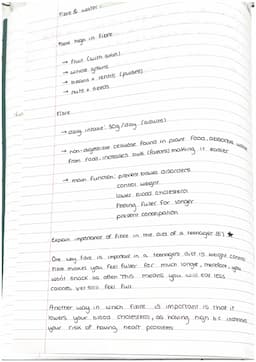 Fibre & water :
Food high in fibre
→ fruit (with skin)
→ whole grains
→ beans + lentils (pulses)
→ nuts + seeds
Fibre
→ daily intake: 30g/day (adults)
→ non-digestible cellulose found in plant food, absorbs water
from food, increases bulk (faeces) making it easier
→ main function: prevent bowel disorders
control weight
lower blood cholesterol
feeling fuller for longer
prevent constipation
Explain importance of fibre in the diet of a teenager (8) ★
One way fibre is important in a teenagers diet is weight control
Fibre makes you feel fuller for much longer, therefore, you
won't snack as often. This means you will eat less
calories yet still feel full
Another way in which fibre is important is that it
lowers your blood cholesterol, as having high b.c increases
your risk of having heart problems